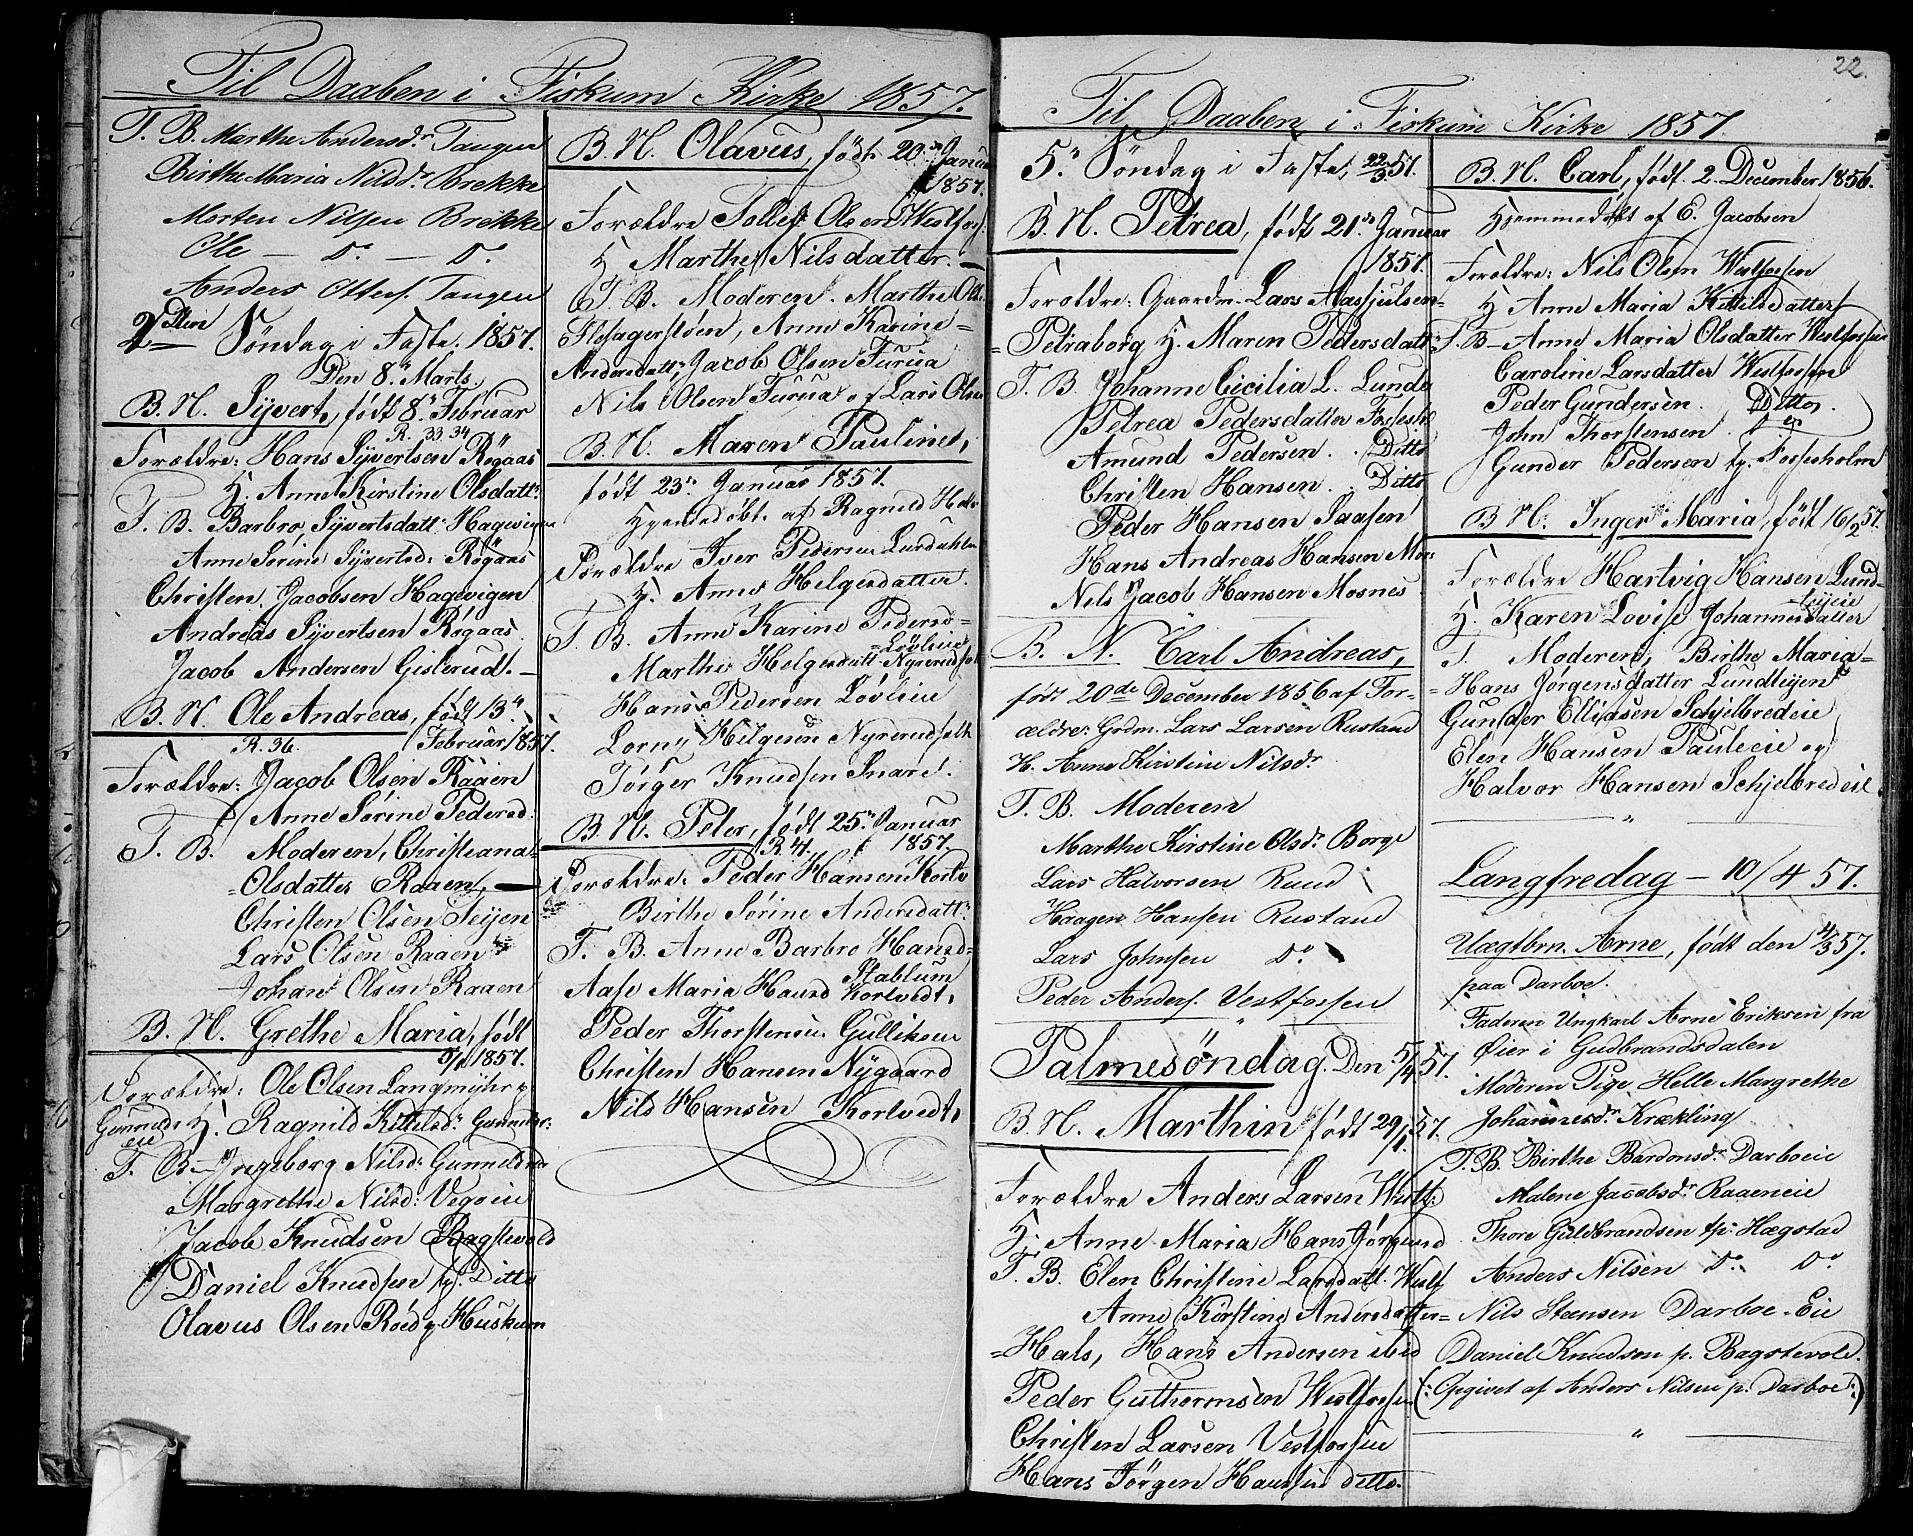 Til Daaben i Fiskum Kirke 1857.
T. B. Marthe Andersd: Tangen
Birthe Maria Nilsd: Brekke
Morten Nilsen Brekke
Ole — Do — Do.
Anders Otters. Tangen
2den Söndag i Faste. 1857.
Den 8de Marts.
B. N. Syvert, født 8de Februar
R. 33 34
Forældre: Hans Syvertsen Røgaas
H. Anne Kirstine Olsdatt:
T. B. Barbro Syvertsdatt: Hagevigen
Anne Sørine Syvertsd: Røgaas
Christen Jacobsen Hagevigen
Andreas Syvertsen Røgaas.
Jacob Andersen Gislerud. —
B. N. Ole Andreas, født 13de
R. 36. Februar 1857.
Forældre: Jacob Olsen Raaen
Anne Sørine Pedersd:
T. B. Moderen, Christiana
Olsdatter Raaen, —
Christen Olsen Teijen
Lars Olsen Raaen
Johan Olsen Raaen
B. N. Grethe Maria, født
1857.
Forældre: Ole Olsen Langmyhr
H. Ragnild Kittelsd:
T. B. Ingeborg Nilsd:
Margrethe Nilsd:
Jacob Knudsen Bagstevold
Daniel Knudsen Ditto
Olavus Olsen Røed Huskum
B. N. Olavus, født 20de Januar
1857.
Forældre Tollef Olsen Westfos.
H Marthe Nilsdatter. —
T. B. Moderen. Marthe
Anne Karine
Andersdatt; Jacob Olsen Furua
Nils Olsen Furua Lars Olsen
B. N. Maren Pauline,
født 23de Januar 1857.
Hjemmedøbt af Ragnild
Forældre Iver Pedersen Lurdahlen
H. Anne Helgesdatter.
T. B. Anne Karine Pedersd
Løvleie
Marthe Helgesdatt
Hans Pedersen Løvleie
Helgesen
Torger Knudsen Snare.
B. N. Peter, født 25de Januar
R. 41. 1857.
Forældre: Peder Hansen
Birthe Sørine Andersdatt:
T. B. Anne Barbro Hansd
Stablum
Aase Maria Hansd Kortvedt,
Peder Thorstensen Gulliksen
Christen Hansen Nygaard
Nils Hansen Kortvedt,
22.
Til Daaben i Fiskum Kirke 1857
5te Söndag i Faste, 22/3 57.
B. N. Petrea, født 21de Januar
1857.
Forældre: Gaardm. Lars Aasjulsen
Petraborg H. Maren Pedersdatt:
T. B. Johanne Cicilia L. Lunde
Petrea Pedersdatter
Amund Pedersen . Ditto
Christen Hansen . Ditto
Peder Hansen Saasen
Hans Andreas Hansen
Nils Jacob Hansen Mosnes
B. N. Carl Andreas,
født 20de December 1856 af For-
ældre: Grdm. Lars Larsen Rustand
H. Anne Kirstine Nilsdr
T. B. Moderen
Marthe Kirstine Olsdr Borge
Lars Halvorsen Ruud
Haagen Hansen Rustand
Lars Johnsen Do
Peder Anders. Vestfossen
Palmesöndag. Den 5/4 57.
B. N. Marthin født 29/1. 57.
Forældre Anders Larsen Westf:
H. Anne Maria Hans Jørgensd
T. B. Elen Christine Larsdatt. Westf
Anne Kirstine Andersdatter
Hals, Hans Andersen ibid
Peder Guthormsen Westfossen
Christen Larsen Vestfossen
Hans Jörgen Hansen ditto.
B. N. Carl, født. 2. December 1856.
Hjemmedøbt af E. Jacobsen
Forældre: Nils Olsen Westfossen
H Anne Maria Kittelsdatter
T. B— Anne Maria Olsdatter Westfossen
Caroline Larsdatter Westfossen
Peder Gundersen. Ditto.
John Thorstensen Do
Gunder Pedersen Fossesholm
B. N. Inger Maria, født 16/2 57.
Forældre Hartvig Hansen Lund-
tejeie
H. Karen Lovise Johannesdatter
T. Moderen, Birthe Maria
Hans Jørgensdatter Lundteyen
Gunder Elliasen Schjelbredeie
Elen Hansen Pauleeie og
Halvor Hansen Schjelbredeie
"
Langfredag — 10/4 57.
Uægtbrn. Arne, født den 4/3 57.
paa Darboe.
Faderen Ungkarl Arne Eriksen fra
Øier i Gudbrandsdalen
Moderen Pige Helle Margrethe
Johannesdr Krækling
T. B. Birthe Bardonsdr Darboeie
Malene Jacobsdr Raaeneie
Thore Guldbrandsen tp: Hægstad
Anders Nilsen Do. Do
Nils Steensen Darboe-Eie
Daniel Knudsen p. Bagstevold.
(: Opgivet af Anders Nilsen p. Darboe:)
"